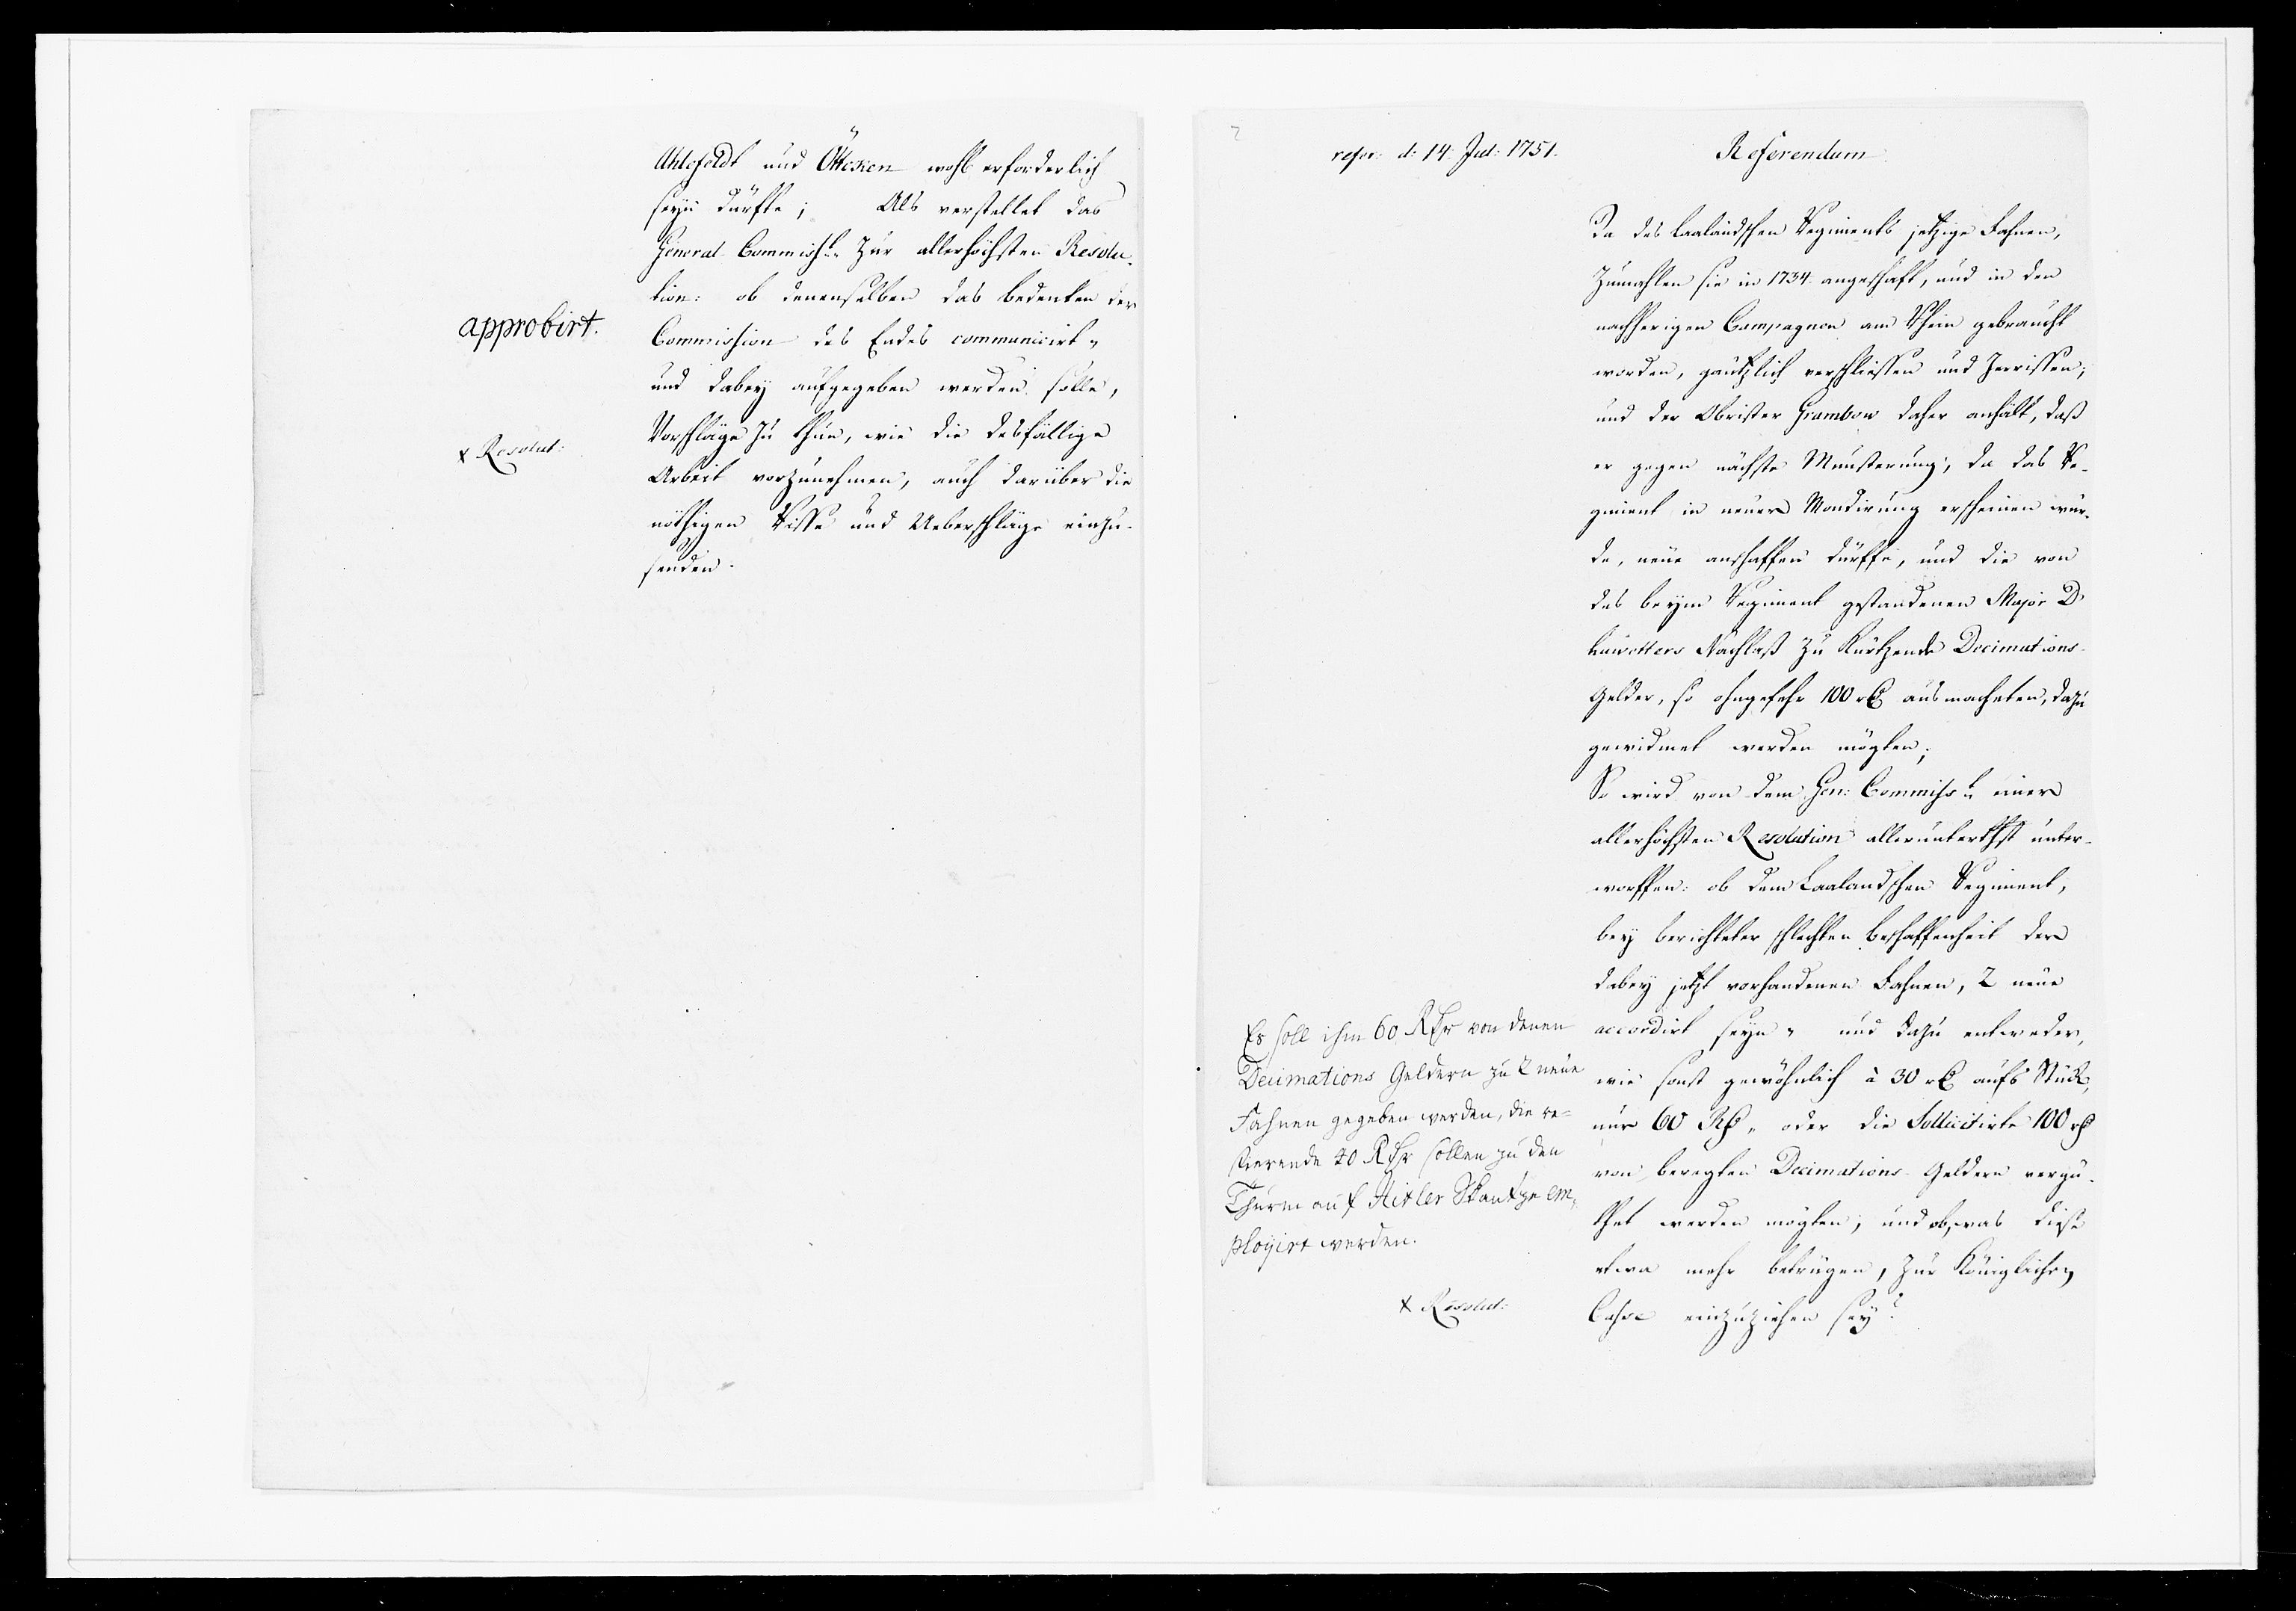 Ahlefeldt und Ötteken wohl erforderlich
seyn dürffte; Als verstellet das
General-Commiss: zur allerhöchsten Resolu-
tion: ob denenselben das bedenken der
Commission des Endes communicirt
und dabey aufgegeben werden solle,
Vorschläge zu thun, wie die desfällige
Arbeit vorzunehmen, auch darüber die
nöthigen Risse und Ueberschläge einzu-
senden.
approbirt.
x Resolut:
7
refer: d: 14: Jul: 1751.
Referendum
Da des Laalandschen Regiments jetzige Fahnen,
zumahlen sie in 1734. angeschaft, und in den
nachherigen Campagnen am Rhein gebraucht
worden, gäntzlich verschliessen und zerrissen;
und der Obrister Grambow daher anhält, daß
er gegen nächste Munsterung, da das Re-
giment in neuer Mondirung erscheinen wür-
de, neue anschaffen dürffe, und die von
des beym Regiment gestandenen Major D.
Nachlaß zu kürtzende Decimations-
Gelder, so ohngefehr 100 rC ausmacheten, dazu
gewidmet werden mögten;
So wird von dem Gen: Commiss einer
allerhöchsten Resolution allerunterthst unter-
worffen: ob dem Laalandschen Regiment,
bey berichteter schlechten beschaffenheit der
dabey jetzt vorhandenen Fahnen, 2 neue
accordirt seyn und dazu entweder,
wie sonst gewöhnlich à 30 rC aufs Stück,
nur 60 Rß, oder die Sollicitirte 100 rß
von beregten Decimations-Geldern vergü-
thet werden mögten; und ob, was diese
etwa mehr betrügen, zur Königlichen
Casse einzuziehen sey?
Es soll ihm 60 Rthr von denen
Decimations Geldern zu 2 neue
Fahnen gegeben werden, die re-
stierende 40 Rthr sollen zu den
Thurm auf Hitler Skantze em-
ployirt werden.
x Resolut: